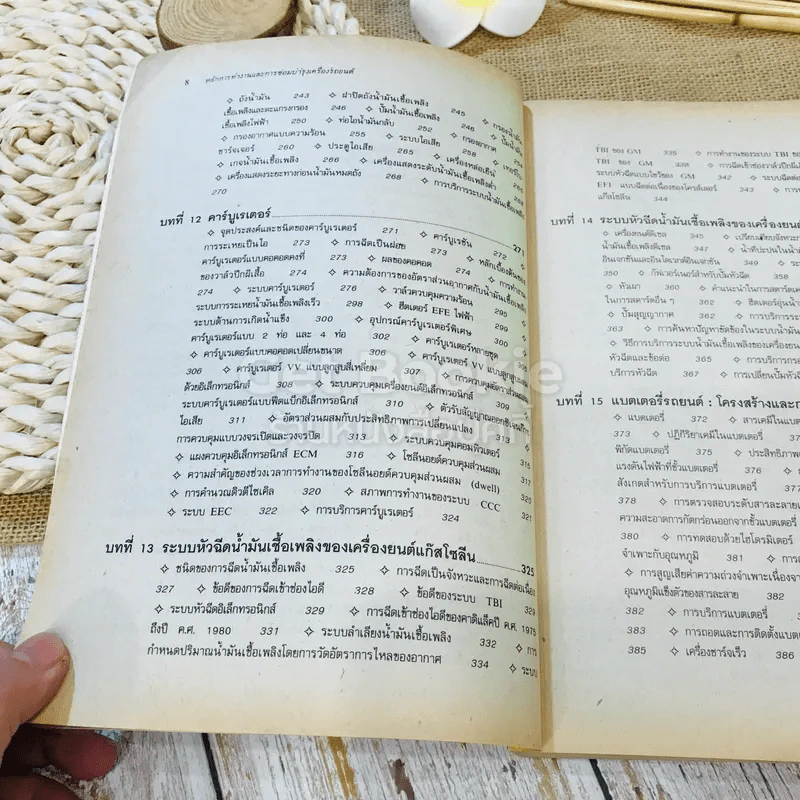 8 หลักการทำงานและการซ่อมบำรุงเครื่องรถยนต์
✧ ถังน้ำมัน 243 ✧ ฝาปิดถังน้ำมันเชื้อเพลิง 245 ✧ กรองน้ำมัน
เชื้อเพลิงและตะแกรงกรอง 246 ✧ ปั๊มน้ำมันเชื้อเพลิง 246 ✧ ปั๊มน้ำมัน
เชื้อเพลิงไฟฟ้า 250 ✧ ท่อไอน้ำมันกลับ 252 ✧ กรองอากาศ 254
✧ กรองอากาศแบบความร้อน 255 ✧ ระบบไอเสีย 258 ✧ เทอร์โบ
ชาร์จเจอร์ 260 ✧ ประตูไอเสีย 265 ✧ เครื่องหล่อเย็น 266
✧ เกจน้ำมันเชื้อเพลิง 266 ✧ เครื่องแสดงระดับน้ำมันเชื้อเพลิงต่ำ
✧ เครื่องแสดงระยะทางก่อนน้ำมันหมดถัง 268 ✧ การบริการระบบน้ำมันเชื้อเพลิง
270
บทที่ 12 คาร์บูเรเตอร์ 271
✧ จุดประสงค์และชนิดของคาร์บูเรเตอร์ 271 ✧ คาร์บูเรชัน 272
การระเหยเป็นไอ 273 ✧ การฉีดเป็นฝอย 273 ✧ หลักเบื้องต้นของ
คาร์บูเรเตอร์แบบคอคอดคงที่ 273 ✧ ผลของคอคอด 274 ✧ การทำงาน
ของวาล์วปีกผีเสื้อ 274 ✧ ความต้องการของอัตราส่วนอากาศกับน้ำมันเชื้อเพลิง
274 ✧ ระบบคาร์บูเรเตอร์ 276 ✧ วาล์วควบคุมความร้อน 295 ✧
ระบบการระเหยน้ำมันเชื้อเพลิงเร็ว 298 ✧ ฮีตเตอร์ EFE ไฟฟ้า 299 ✧
ระบบต้านการเกิดน้ำแข็ง 300 ✧ อุปกรณ์คาร์บูเรเตอร์พิเศษ 300 ✧
คาร์บูเรเตอร์แบบ 2 ท่อ และ 4 ท่อ 302 ✧ คาร์บูเรเตอร์หลายชุด
✧ คาร์บูเรเตอร์แบบคอคอดเปลี่ยนขนาด 306 ✧ คาร์บูเรเตอร์ VV แบบลูกสูบกลม
306 ✧ คาร์บูเรเตอร์ VV แบบลูกสูบสี่เหลี่ยม 307 ✧ การควบคุมอัตราส่วนผสม
ด้วยอิเล็กทรอนิกส์ 308 ✧ ระบบควบคุมเครื่องยนต์อิเล็กทรอนิกส์ 309 ✧
ระบบคาร์บูเรเตอร์แบบฟีดแบ็กอิเล็กทรอนิกส์ 310 ✧ ตัวรับสัญญาณออกซิเจนก๊าซ
ไอเสีย 311 ✧ อัตราส่วนผสมกับประสิทธิภาพการเปลี่ยนแปลง
การควบคุมแบบวงจรเปิดและวงจรปิด 313 ✧ ระบบควบคุมคอมพิวเตอร์ 315
✧ แผงควบคุมอิเล็กทรอนิกส์ ECM 316 ✧ โซลีนอยด์ควบคุมส่วนผสม 317
✧ ความสำคัญของช่วงเวลาการทำงานของโซลีนอยด์ควบคุมส่วนผสม (dwell) 320
✧ การคำนวณดิวตีไซเคิล 320 ✧ สภาพการทำงานของระบบ CCC 321
✧ ระบบ EEC 322 ✧ การบริการคาร์บูเรเตอร์ 324
บทที่ 13 ระบบหัวฉีดน้ำมันเชื้อเพลิงของเครื่องยนต์แก๊สโซลีน 325
✧ ชนิดของการฉีดน้ำมันเชื้อเพลิง 325 ✧ การฉีดเป็นจังหวะและการฉีดต่อเนื่อง
327 ✧ ข้อดีของการฉีดเข้าช่องไอดี 328 ✧ ข้อดีของระบบ TBI 329
✧ ระบบหัวฉีดอิเล็กทรอนิกส์ 329 ✧ การฉีดเข้าช่องไอดีของคาดิแล็คปี ค.ศ. 1975
ถึงปี ค.ศ. 1980 331 ✧ ระบบลำเลียงน้ำมันเชื้อเพลิง 332 ✧ การ
กำหนดปริมาณน้ำมันเชื้อเพลิงโดยการวัดอัตราการไหลของอากาศ 334 ✧ ระบบ
TBI ของ GM 335 ✧ การทำงานของระบบ TBI ของ
TBI ของ GM 338 ✧ การฉีดเข้าช่องวาล์วปีกผีเสื้อ
ระบบหัวฉีดแบบโชว์ของ GM 342 ✧ ระบบฉีดต่อ
EFI แบบฉีดต่อเนื่องของไครส์เลอร์ 343 ✧ การ
แก๊สโซลีน 344
บทที่ 14 ระบบหัวฉีดน้ำมันเชื้อเพลิงของเครื่องยนต์
✧ เครื่องยนต์ดีเซล 345 ✧ เปรียบเทียบจังหวะ
น้ำมันเชื้อเพลิงดีเซล 347 ✧ น้ำที่ปะปนในน้ำมัน
อินเจกชันและอินไดเรกต์อินเจกชัน 349 ✧ ระ
350 ✧ กัฟเวอร์เนอร์สำหรับปั๊มหัวฉีด 355 ✧
✧ หัวเผา 360 ✧ คำแนะนำในการสตาร์ตเค
ในการสตาร์ตอื่น ๆ 362 ✧ ฮีตเตอร์อุ่นน้ำ
✧ ปั๊มสูญญากาศ 362 ✧ การบริการระบ
363 ✧ การค้นหาปัญหาขัดข้องในระบบน้ำมัน
✧ วิธีการบริการระบบน้ำมันเชื้อเพลิงของเครื่อง
หัวฉีดและข้อต่อ 365 ✧ การบริการกร
บริการหัวฉีด 367 ✧ การเปลี่ยนปั๊มหัวฉี
บทที่ 15 แบตเตอรี่รถยนต์ : โครงสร้างและก
✧ แบตเตอรี่ 372 ✧ สารเคมีในแบต
373 ✧ ปฏิกิริยาเคมีในแบตเตอรี่
พิกัดแบตเตอรี่ 375 ✧ ประสิทธิภาพ
แรงดันไฟฟ้าที่ขั้วแบตเตอรี่ 376 ✧
สังเกตสำหรับการบริการแบตเตอรี่
378 ✧ การตรวจสอบระดับสารละลาย
ความสะอาดการกัดกร่อนออกจากขั้วแบตเตอรี่
380 ✧ การทดสอบด้วยไฮโดรมิเตอร์
จำเพาะกับอุณหภูมิ 381 ✧ การ
✧ การสูญเสียค่าความถ่วงจำเพาะเนื่องจา
อุณหภูมิแข็งตัวของสารละลาย 382
382 ✧ การบริการแบตเตอรี่
383 ✧ การถอดและการติดตั้งแบต
385 ✧ เครื่องชาร์จเร็ว 386